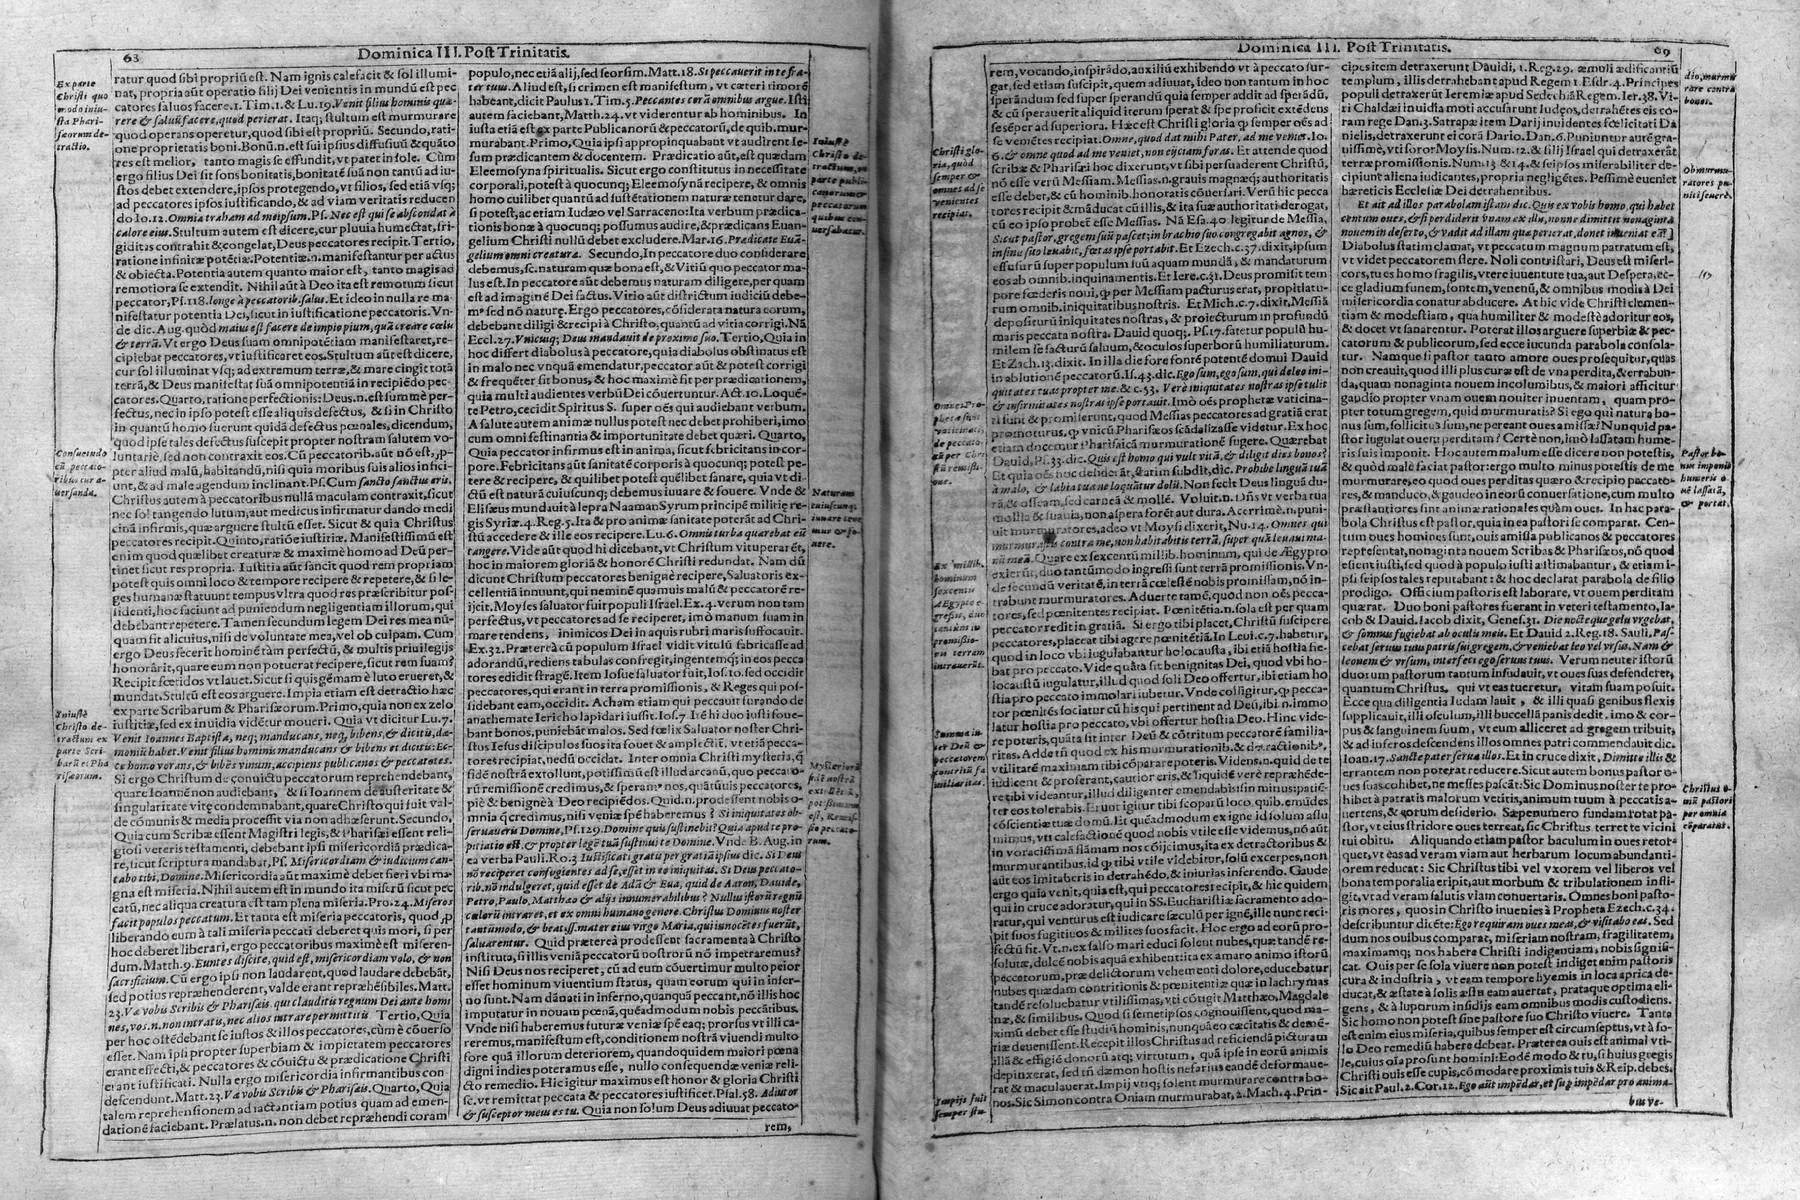 63
Dominica III. Post Trinitatis.
ratur quod sibi propriũ est. Nam ignis calefacit & sol illumi-
nat, propria aũt operatio filij Dei venientis in mundũ est pec
catores saluos facere. 1. Tim. 1. & Lu. 19. Venit filius hominis quæ-
rere & saluũ facere, quod perierat. Itaq; stultum est murmurare
quod operans operetur, quod sibi est propriũ. Secundo, rati-
one proprietatis boni. Bonũ. n. est sui ipsius diffusiuũ & quãto
res est melior, tanto magis se effundit, vt patet in sole. Cùm
ergo filius Dei sit fons bonitatis, bonitatẽ suã non tantũ ad iu-
stos debet extendere, ipsos protegendo, vt filios, sed etiã vsq;
ad peccatores ipsos iustificando, & ad viam veritatis reducen
do Io. 12. Omnia traham ad meipsum. Ps. Nec est qui se abscondat à
calore eius. Stultum autem est dicere, cur pluuia humectat, fri-
giditas contrahit & congelat, Deus peccatores recipit. Tertio,
ratione infinitæ potẽtiæ. Potentiæ. n. manifestantur per actus
& obiecta. Potentia autem quanto maior est, tanto magis ad
remotiora se extendit. Nihil aũt à Deo ita est remotum sicut
peccator, Ps. 118. longe à peccatorib. salus. Et ideo in nulla re ma-
nifestatur potentia Dei, sicut in iustificatione peccatoris. Vn-
de dic. Aug. quòd maius est facere de impio pium, quã creare cælũ
& terrã. Vt ergo Deus suam omnipotẽtiam manifestaret, re-
cipiebat peccatores, vt iustificaret eos. Stultum aũt est dicere,
cur sol illuminat vsq; ad extremum terræ, & mare cingit totã
terrã, & Deus manifestat suã omnipotentiã in recipiẽdo pec-
catores. Quarto, ratione perfectionis: Deus. n. est summè per-
fectus, nec in ipso potest esse aliquis defectus, & si in Christo
in quantũ homo fuerunt quidã defectus pœnales, dicendum,
quod ipse tales defectus suscepit propter nostram salutem vo-
luntariè, sed non contraxit eos. Cũ peccatorib. aũt nõ est, p-
pter aliud malũ, habitandũ, nisi quia moribus suis alios infici-
unt, & ad malum inclinant. Ps. Cum sancto sanctus eris.
Christus autem à peccatoribus nullã maculam contraxit, sicut
nec sol tangendo lutum, aut medicus infirmatur dando medi
cinã infirmis, quæ arguere stultũ esset. Sicut & quia Christus
peccatores recipit. Quinto, ratiõe iustitiæ. Manifestissimũ est
enim quod quælibet creaturæ & maximè homo ad Deũ per-
tinet sicut res propria. Iustitia aũt sancit quod rem propriam
potest quis omni loco & tempore recipere & repetere, & si le-
ges humanæ statuunt tempus vltra quod res præscribitur pos-
sidenti, hoc faciunt ad puniendum negligentiam illorum, qui
debebant repetere. Tamen secundum legem Dei res mea nũ-
quam fit alicuius, nisi de voluntate mea, vel ob culpam. Cum
ergo Deus fecerit hominẽ tàm perfectũ, & multis priuilegijs
honorârit, quare eum non potuerat recipere, sicut rem suam?
Recipit fœtidos vt lauet. Sicut si quis gẽmam è luto erueret, &
mundat. Stultũ est eos arguere. Impia etiam est detractio hæc
ex parte Scribarum & Pharisæorum. Primo, quia non ex zelo
iustitiæ, sed ex inuidia vidẽtur moueri. Quia vt dicitur Lu. 7.
Venit Ioannes Baptista, neq; manducans, neq, bibens, & dicitis, dæ-
moniũ habet. Venit filius hominis manducans & bibens et dicitis: Ec-
ce homo vorans, & bibẽs vinum, accipiens publicanos & peccatores.
Si ergo Christum de cõuictu peccatorum reprehendebant,
quare Ioannẽ non audiebant, & si Ioannem de austeritate &
singularitate vitę condemnabant, quare Christo qui fuit val-
de cõmunis & media processit via non adhæserunt. Secundo,
Quia cum Scribæ essent Magistri legis, & Pharisæi essent reli-
giosi veteris testamenti, debebant ipsi misericordiã prædica-
re, sicut scriptura mandabat, Ps. Misericordiam & iudicium can-
tabo tibi, Domine. Misericordia aũt maximè debet fieri vbi ma-
gna est miseria. Nihil autem est in mundo ita miserũ sicut pec
catũ, nec aliqua creatura est tam plena miseria. Pro. 24. Miseros
facit populos peccatum. Et tanta est miseria peccatoris, quod, p
liberando eum à tali miseria peccati deberet quis mori, si per
hoc deberet liberari, ergo peccatoribus maximè est miseren-
dum. Matth. 9. Euntes discite, quid est, misericordiam volo, & non
sacrificium. Cũ ergo ipsi non laudarent, quod laudare debebãt,
sed potius repræhenderent, valde erant repræhẽsibiles. Matt.
23. Væ vobis Scribis & Pharisæis. qui clauditis regnum Dei ante homi
nes, vos. n. non intratis, nec alios intrare permittitis Tertio, Quia
per hoc ostẽdebãt se iustos & illos peccatores, cùm è cõuerso
esset. Nam ipsi propter superbiam & impietatem peccatores
erant effecti, & peccatores & cõuictu & prædicatione Christi
erant iustificati. Nulla ergo misericordia infirmantibus con-
descendunt. Matt. 23. Væ vobis Scribis & Pharisæis. Quarto, Quia
talem reprehensionem ad iactantiam potius quam ad emen-
dationẽ faciebant. Prælatus. n. non debet repræhendi coram
Ex parte
Christi quo
modo iniu-
sta Phari-
sæorum de-
tractio.
Consuetudo
cũ peccato-
ribus cur a-
uersanda.
Iniustè
Christo de-
tractum ex
parte Scri-
barũ et Pha
risæorum.
populo, nec etiã alij, sed seorsim. Matt. 18. Si peccauerit in te fra-
ter tuus. Aliud est, si crimen est manifestum, vt cæteri timorẽ
habeant, dicit Paulus 1. Tim. 5. Peccantes corã omnibus argue. Isti
autem faciebant, Matth. 24. vt viderentur ab hominibus. In
iusta etiã est ex parte Publicanorũ & peccatorũ, de quib. mur-
murabant. Primo, Quia ipsi appropinquabant vt audirent Ie-
sum prædicantem & docentem. Prædicatio aũt, est quædam
Eleemosyna spiritualis. Sicut ergo constitutus in necessitate
corporali, potest à quocunq; Eleemosynã recipere, & omnis
homo cuilibet quantũ ad sustẽtationem naturæ tenetur dare,
si potest, ac etiam Iudæo vel Sarraceno: Ita verbum prædica-
tionis bonæ à quocunq; possumus audire, & prædicans Euan-
gelium Christi nullũ debet excludere. Mar. 16. Prædicate Euã-
gelium omni creaturæ. Secundo, In peccatore duo considerare
debemus, sc. naturam quæ bona est, & Vitiũ quo peccator ma-
lus est. In peccatore aũt debemus naturam diligere, per quam
est ad imaginẽ Dei factus. Vitio aũt districtum iudiciũ debe-
mꝰ sed nõ naturę. Ergo peccatores, cõsiderata natura eorum,
debebant diligi & recipi à Christo, quantũ ad vitia corrigi. Nã
Eccl. 27. Vnicuiq; Deus mandauit de proximo suo. Tertio, Quia in
hoc differt diabolus à peccatore, quia diabolus obstinatus est
in malo nec vnquã emendatur, peccator aũt & potest corrigi
& frequẽter fit bonus, & hoc maximè fit per prædicationem,
quia multi audientes verbũ Dei cõuertuntur. Act. 10. Loquẽ-
te Petro, cecidit Spiritus S. super oẽs qui audiebant verbum.
A salute autem animæ nullus potest nec debet prohiberi, imo
cum omni festinantia & importunitate debet quæri. Quarto,
Quia peccator infirmus est in anima, sicut febricitans in cor-
pore. Febricitans aũt sanitatẽ corporis à quocunq; potest pe-
tere & recipere, & quilibet potest quẽlibet sanare, quia vt di-
ctũ est naturã cuiuscunq; debemus iuuare & fouere. Vnde &
Elisæus mundauit à lepra Naaman Syrum principẽ militię re-
gis Syriæ. 4. Reg. 5. Ita & pro animæ sanitate poterãt ad Chri-
stũ accedere & ille eos recipere. Lu. 6. Omnis turba quærebat eũ
tangere. Vide aũt quod hi dicebant, vt Christum vituperarẽt,
hoc in maiorem gloriã & honorẽ Christi redundat. Nam dũ
dicunt Christum peccatores benignè recipere, Saluatoris ex-
cellentiã innuunt, qui neminẽ quamuis malũ & peccatorẽ re-
ijcit. Moyses saluator fuit populi Israel. Ex. 4. verum non tam
perfectus, vt peccatores ad se reciperet, imò manum suam in
mare tendens, inimicos Dei in aquis rubri maris suffocauit.
Ex. 32. Præterea cũ populum Israel vidit vitulũ fabricasse ad
adorandũ, rediens tabulas confregit, ingentemq; in eos pecca
tores edidit stragẽ. Item Iosue saluator fuit, Ios. 10. sed occidit
peccatores, qui erant in terra promissionis, & Reges qui pos-
sidebant eam, occidit. Acham etiam qui peccauit furando de
anathemate Iericho lapidari iussit. Ios. 7 Itẽ hi duo iusti foue-
bant bonos, puniebãt malos. Sed fœlix Saluator noster Chri-
stus Iesus discipulos suos ita fouet & amplectit. vt etiã pecca-
tores recipiat, nedũ occidat. Inter omnia Christi mysteria, q̃
fidẽ nostrã extollunt, potissimũ est illud arcanũ, quo peccato
rũ remissionẽ credimus, & speramꝰ nos, quãtũuis peccatores,
piè & benignè à Deo recipiẽdos. Quid. n. prodessent nobis o-
mnia q̃ credimus, nisi veniæ spẽ haberemus? Si iniquitates ob-
seruaueris Domine, Ps. 129. Domine quis sustinebit? Quia apud te pro-
pitiatio est, & propter legẽ tuã sustinui te Domine. Vnde B. Aug. in
ea verba Pauli. Ro. 3 Iustificati gratis per gratiã ipsius dic. Si Deus
nõ reciperet confugientes ad se, esset in eo iniquitas. Si Deus peccato-
rib. nõ indulgeret, quid esset de Adã & Eua, quid de Aaron, Dauide,
Petro, Paulo, Matthæo & alijs innumerabilibus? Nullus istorũ regnũ
cælorũ intraret, et ex omni humano genere. Christus Dominus noster
tantũmodo, & beatiss. mater eius virgo Maria, qui innocẽtes fuerũt,
saluarentur. Quid prætereà prodessent sacramenta à Christo
instituta, si illis veniã peccatorũ nostrorũ nõ impetraremus?
Nisi Deus nos reciperet, cũ ad eum cõuertimur multo peior
esset hominum viuentium status, quàm eorum qui in infer-
no sunt. Nam dãnati in inferno, quanquã peccant, nõ illis hoc
imputatur in nouam pœnã, quẽadmodum nobis peccãtibus.
Vnde nisi haberemus futuræ veniæ spẽ eaq; prorsus vt illi ca-
reremus, manifestum est, conditionem nostrã viuendi multo
fore quã illorum deteriorem, quandoquidem maiori pœna
digni indies poteramus esse, nullo consequendæ veniæ reli-
cto remedio. Hic igitur maximus est honor & gloria Christi
sc. vt remittat peccata & peccatores iustificet. Psal. 58. Adiutor
& susceptor meus es tu. Quia non solum Deus adiuuat peccato-
rem,
Iniustè
Christo de-
tractum, ex
parte publi-
canorum &
peccatorum
quibus con-
uersabatur.
Naturam
cuiuscunq;
iuuare tene
mur & fo-
uere.
Dominica III. Post Trinitatis.
69
rem, vocando, inspirãdo, auxiliũ exhibendo vt à peccato sur-
gat, sed etiam suscipit, quem adiuuat, ideo non tantum in hoc
sperãndum sed super sperandũ quia semper addit ad sperãdũ,
& cũ sperauerit aliquid iterum sperat & spe proficit extẽdens
se sẽper ad superiora. Hæc est Christi gloria qp semper oẽs ad
se veniẽtes recipiat. Omne, quod dat mihi Pater, ad me veniet. Io.
6. & omne quod ad me veniet, non eijciam foras. Et attende quod
scribæ & Pharisæi hoc dixerunt, vt sibi persuaderent Christũ,
nõ esse verũ Messiam. Messias. n. grauis magnæq; authoritatis
esse debet, & cũ hominib. honoratis cõuersari. Verũ hic pecca
tores recipit & mãducat cũ illis, & ita suæ authoritati derogat,
cũ eo ipso probet esse Messias. Nã Esa. 40 legitur de Messia,
Sicut pastor, gregem suũ pascet; in brachio suo congregabit agnos, &
in sinu suo leuabit, fœtas ipse portabit. Et Ezech. c. 37. dixit, ipsum
effusurũ super populum suũ aquam mundã, & mandaturum
eos ab omnib. inquinamentis. Et Iere. c. 31. Deus promisit tem
pore fœderis noui, qp per Messiam pacturus erat, propitiatu-
rum omnib. iniquitatibus nostris. Et Mich. c. 7. dixit, Messiã
depositurũ iniquitates nostras, & proiecturum in profundũ
maris peccata nostra. Dauid quoq; Ps. 17. fatetur populũ hu-
milem se facturũ saluum, & oculos superborũ humiliaturum.
Et Zach. 13. dixit. In illa die fore fontẽ potentẽ domui Dauid
in ablutionẽ peccatorũ. Is. 43. dic. Ego sum, ego sum, qui deleo ini-
quitates tuas propter me. & c. 53. Verè iniquitates nostras ipse tulit
& infirmitates nostras ipse portauit. Imò oẽs prophetæ vaticina-
ti sunt & promiserunt, quod Messias peccatores ad gratiã erat
promoturus. qp vnicũ Pharisæos scãdalizasse videtur. Ex hoc
etiam docemur Pharisaicã murmurationẽ fugere. Quærebat
Dauid, Ps. 33. dic. Quis est homo qui vult vitã, & diligit dies bonos?
Et quia oẽs hoc desiderãt, statim subdit, dic. Prohibe linguã tuã
à malo, & labia tua ne loquãtur dolũ. Non fecit Deus linguã du-
rã, & osseam, sed carneã & mollẽ. Voluit. n. Dñs vt verba tua
mollia & suauia, non aspera forẽt aut dura. Acerrimè. n. puni-
uit murmuratores, adeo vt Moysi dixerit, Nu. 14. Omnes qui
murmurastis contra me, non habitabitis terrã, super quã leuaui ma-
nũ meã. Quare ex sexcentis millib. hominum, qui de Ægypto
exierũt, duo tantũmodo ingressi sunt terrã promissionis. Vn-
de secundũ veritatẽ, in terrã cœlestẽ nobis promissam, nõ in-
trabunt murmuratores. Aduerte tamẽ, quod non oẽs pecca-
tores, sed pœnitentes recipiat. Pœnitẽtia. n. sola est per quam
peccator redit in gratiã. Si ergo tibi placet, Christũ suscipere
peccatores, placeat tibi agere pœnitẽtiã. In Leui. c. 7. habetur,
quod in loco vbi iugulabantur holocausta, ibi etiã hostia fie-
bat pro peccato. Vide quãta sit benignitas Dei, quod vbi ho-
locaustũ iugulatur, illud quod soli Deo offertur, ibi etiam ho
stia pro peccato immolari iubetur. Vnde colligitur, qp pecca-
tor pœnitẽs sociatur cũ his qui pertinent ad Deũ, ibi. n. immo
latur hostia pro peccato, vbi offertur hostia Deo. Hinc vide-
re poteris, quãta sit inter Deũ & cõtritum peccatorẽ familia-
ritas. Adde tũ quod ex his murmurationib. & detractionibꝰ,
vtilitatẽ maximam tibi cõparare poteris. Videns. n. quid de te
iudicent & proferant, cautior eris, & si quidẽ verè repræhẽde-
re tibi videantur, illud diligenter emendabis sin minus: patiẽ-
ter eos tolerabis. Eruut igitur tibi scoparũ loco, quib. emũdes
cõscientiæ tuæ domũ. Et quẽadmodum ex igne id solum assu
mimus, vt. calefactionẽ quod nobis vtile esse videmus, nõ aũt
in voracissimã flãmam nos cõijcimus, ita ex detractoribus &
murmurantibus. id qp tibi vtile videbitur, solũ excerpes, non
aũt eos imitaberis in detrahẽdo, & iniurias inferendo. Gaude
ergo quia venit, quia est, qui peccatores recipit, & hic quidem
qui in cruce adoratur, qui in SS. Eucharistiæ sacramento ado-
ratur, qui venturus est iudicare sæculũ per ignẽ, ille nunc reci-
pit suos fugitiuos & milites suos facit. Hoc ergo ad eorũ pro-
fectũ fit. Vt. n. ex falso mari educi solent nubes, quæ tandẽ re-
solutæ, dulcẽ nobis aquã exhibent ita ex amaro animo istorũ
peccatorum, præ delictorum vehementi dolore, educebatur
nubes quædam contritionis & pœnitẽtiæ quæ in lachrymas
tandẽ resoluebatur vtilissimas, vti cõtigit Matthæo, Magdale
næ, & similibus. Quod si semetipsos cognouissent, quod ma-
ximũ debet esse studiũ hominis, nunquã eo cæcitatis & demẽ-
tiæ deuenissent. Recepit illos Christus ad reficiendã picturam
illã & effigiẽ donorũ atq; virtutum, quã ipse in eorũ animis
depinxerat, sed tñ dæmon hostis nefarius eandẽ deformaue-
rat & maculauerat. Impij vtiq; solent murmurare contra bo-
nos. Sic Simon contra Oniam murmurabat, 2. Mach. 4. Prin-
Christi glo-
ria, quòd
semper &
omnes ad se
venientes
recipiat.
Ex millib.
hominum
sexcentis
Ægypto e-
gressis, duo
tantùm in
promissio-
nis terram
intrauerũt.
Impijs fuit
semper stu-
cipes item detraxerunt Dauidi, 1. Reg. 29. æmuli ædificantiũ
templum, illis detrahebant apud Regem 1. Esdr. 4. Principes
populi detraxerũt Ieremiæ apud Sedechiã Regem. Ier. 38. Vi-
ri Chaldæi inuidia moti accusarunt Iudęos, detrahẽtes eis co-
ram rege Dan. 3. Satrapæ item Darij inuidentes fœlicitati Da
nielis, detraxerunt ei corã Dario. Dan. 6. Puniuntur autẽ gra-
uissimè, vti soror Moysis. Num. 12. & filij Israel qui detraxerũt
terræ promissionis. Num. 13 & 14. & seipsos miserabiliter de-
cipiunt aliena iudicantes, propria negligẽtes. Pessimè eueniet
hæreticis Ecclesiæ Dei detrahentibus.
Et ait ad illos parabolam istam dic. Quis ex vobis homo, qui habet
centum oues, & si perdiderit vnam ex illis, nonne dimittit nonaginta
nouem in deserto, & vadit ad illam quæ perierat, donec inueniat eã?]
Diabolus statim clamat, vt peccatum magnum patratum est,
vt videt peccatorem flere. Noli contristari, Deus est miseri-
cors, tu es homo fragilis, vtere iuuentute tua, aut Despera, ec-
ce gladium funem, fontem, venenũ, & omnibus modis à Dei
misericordia conatur abducere. At hic vide Christi clemen-
tiam & modestiam, qua humiliter & modestè adoritur eos,
& docet vt sanarentur. Poterat illos arguere superbiæ & pec-
catorum & publicorum, sed ecce iucunda parabola consola-
tur. Namque si pastor tanto amore oues prosequitur, quas
non creauit, quod illi plus curæ est de vna perdita, & errabun-
da, quam nonaginta nouem incolumibus, & maiori afficitur
gaudio propter vnam ouem nouiter inuentam, quam pro-
pter totum gregem, quid murmuratis? Si ego qui natura bo-
nus sum, sollicitus sum, ne pereant oues amissæ? Nunquid pa-
stor iugulat ouem perditam? Certè non, imò lassatam hume-
ris suis imponit. Hoc autem malum esse dicere non potestis,
& quòd malè faciat pastor: ergo multo minus potestis de me
murmurare, eo quod oues perditas quæro & recipio peccato-
res, & manduco, & gaudeo in eorũ conuersatione, cum multo
præstantiores sint animæ rationales quàm oues. In hac para-
bola Christus est pastor, quia in ea pastori se comparat. Cen-
tum oues homines sunt, ouis amissa publicanos & peccatores
repræsentat, nonaginta nouem Scribas & Pharisæos, nõ quod
essent iusti, sed quòd à populo iusti æstimabantur, & etiam i-
psi seipsos tales reputabant: & hoc declarat parabola de filio
prodigo. Officium pastoris est laborare, vt ouem perditam
quærat. Duo boni pastores fuerant in veteri testamento, Ia-
cob & Dauid. Iacob dixit, Genes. 31. Die noctuque gelu vrgebat,
& somnus fugiebat ab oculis meis. Et Dauid 2. Reg. 18. Sauli, Pas-
cebat seruus tuus patris sui gregem, & veniebat leo vel vrsus. Nam &
leonem & vrsum, interfeci ego seruus tuus. Verum neuter istorũ
duorum pastorum tantum insudauit, vt oues suas defenderet,
quantum Christus, qui vt eas tueretur, vitam suam posuit.
Ecce qua diligentia Iudam lauit, & illi quasi genibus flexis
supplicauit, illi osculum, illi buccellã panis dedit, imo & cor-
pus & sanguinem suum, vt eum alliceret ad gregem tribuit,
& ad inferos descendens illos omnes patri commendauit dic.
Ioan. 17. Sancte pater serua illos. Et in cruce dixit, Dimitte illis &
errantem non poterat reducere. Sicut autem bonus pastor o-
ues suas cohibet, ne messes pascãt: Sic Dominus noster te pro-
hibet à patratis malorum vetitis, animum tuum à peccatis a-
uertens, & eorum desiderio. Sæpenumero fundam rotat pa-
stor, vt eius stridore oues terreat, sic Christus terret te vicini
tui obitu. Aliquando etiam pastor baculum in oues retor-
quet, vt eas ad veram viam aut herbarum locum abundanti-
orem reducat: Sic Christus tibi vel vxorem vel liberos vel
bona temporalia eripit, aut morbum & tribulationem infli-
git, vt ad veram salutis viam conuertaris. Omnes boni pasto-
ris mores, quos in Christo inuenies à Propheta Ezech. c. 34.
describuntur dicẽte: Ego requiram oues meas, & visitabo eas. Sed
dum nos ouibus comparat, miseriam nostram, fragilitatem,
maximamq; nos habere Christi indigentiam, nobis signifi-
cat. Ouis per se sola viuere non potest indiget enim pastoris
cura & industria, vt eam tempore hyemis in loca aprica de-
ducat, & æstate à solis æstu eam auertat, prataque optima eli-
gens, & à luporum insidijs eam omnibus modis custodiens.
Sic homo non potest sine pastore suo Christo viuere. Tanta
est enim eius miseria, quibus semper est circumseptus, vt à so-
lo Deo remediũ habere debeat. Præterea ouis est animal vti-
le, cuius oĩa prosunt homini: Eodẽ modo & tu, si huius gregis
Christi ouis esse cupis, cõmodare proximis tuis & Reip. debes.
Sic ait Paul. 2. Cor. 12. Ego aũt impẽdar, et sup impẽdar pro anima-
bus ve-
dio, murmu
rare contra
bonos.
Pastor bo-
nus imponit
humeris o-
uẽ lassatã,
& portat.
Christus o-
mni pastori
per omnia
cõparatur.